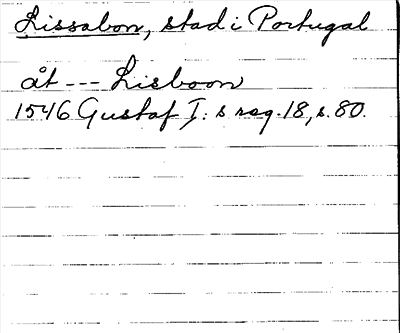 Lissabon, stad i Portugal
åt --- Lisboon
1546 Gustaf I: s reg. 18, s. 80.